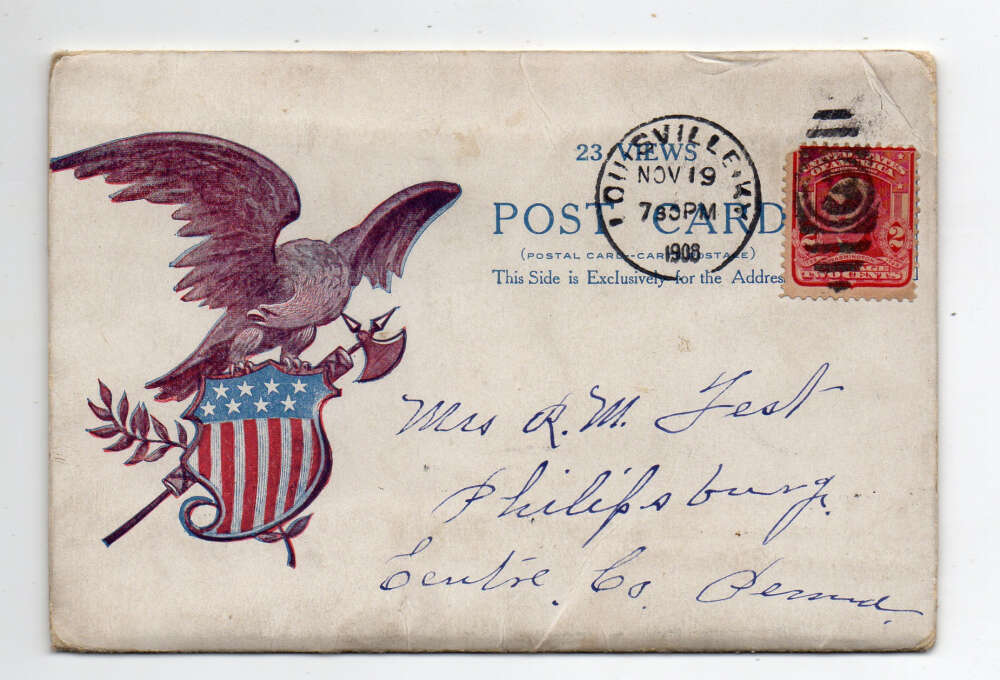 23 VIEWS
POST CARD
(POSTAL CARD-CARTE POSTALE)
This Side is Exclusively for the Address
LOUISVILLE, KY.
NOV 19
730PM
1908
UNITED STATES
OF AMERICA
2 2
TWO CENTS
Mrs R. M. Test
Philipsburg.
Centre. Co. Penna.